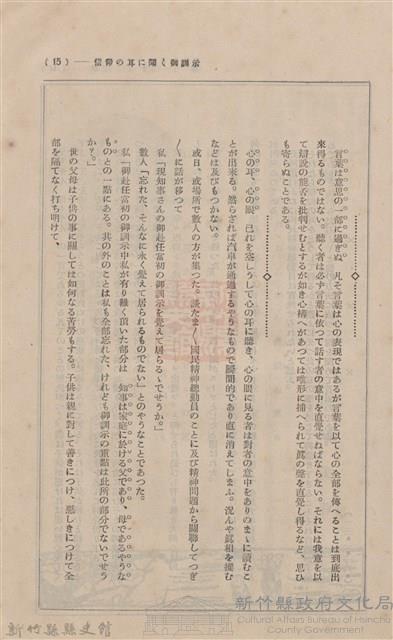 （15）——信仰の耳に聞く御訓示
言葉は意思の一部に過ぎぬ　凡そ言葉は心の表現ではあるが言葉を以て心の全部を傳へることは到底出
來得るものではない。聽く者は必ず言葉に依つて話す者の意中を直覺せねばならない。それには我意を以
て辯說の能否を批判せむとするが如き心構へがあつては唯形に捕へられて眞の聲を直覺し得るなど、思ひ
も寄らぬことである。
心の耳、心の眼　己れを空しうして心の耳に聽き、心の眼に見る者は對者の意中をありのまゝに讀むこ
とが出來る。然らざれば汽車が通過するやうなもので瞬間的であり直に消えてしまふ。況んや眞相を摑む
などは及びもつかない。
或日、或場所で數人の方が集つた。談たま〳〵國民精神總動員のことに及び精神問題から關聯してつぎ
〳〵に話が移つて
私「現知事さんの御赴任當初の御訓示を覺えて居らるゝでせうか。」
數人「忘れた、そんなに永く覺えて居られるものでない」とのやうなことであつた。
私「御赴任當初の御訓示中私が有り難く頂いた部分は　知事は家庭に於ける父であり、母であるやうな
ものとの一點にある。其の外のことは私も全部忘れた、けれども御訓示の重點は此所の部分でないでせう
か？。」
世の父母は子供の事に關しては如何なる苦勞もする。子供は親に對して善きにつけ、惡しきにつけて全
部を隔てなく打ち明けて、
新竹縣政府文化局
Cultural Affairs Bureau of Hsinchu
County Government
新竹縣縣史館